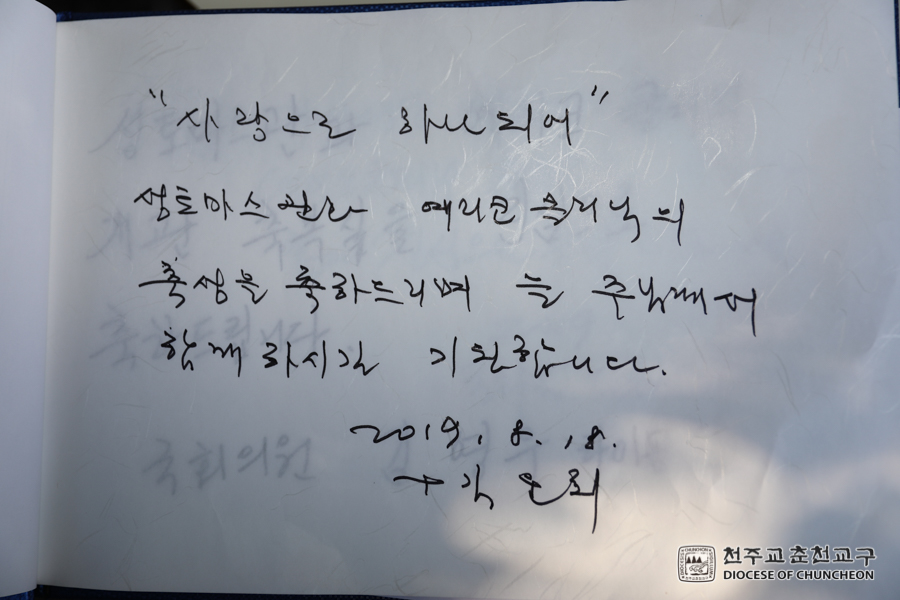 "사랑으로 하나되어"
성토마스 안과 메리코 클리닉의
축성을 축하드리며 늘 주님께서
함께하시길 기원합니다.
2019. 8. 18.
+ 김운회
국회의원
천주교춘천교구
DIOCESE OF CHUNCHEON